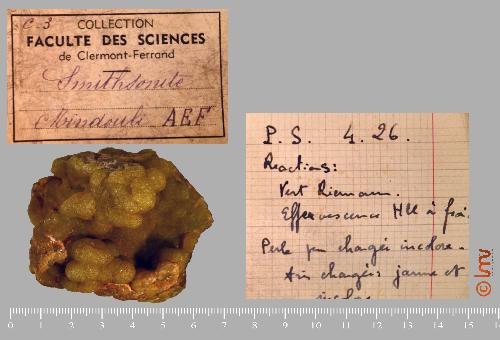 C-3
COLLECTION
FACULTE DES SCIENCES
de Clermont-Ferrand
Smithsonite
Mindouli AEF
P.S. 4.26.
Reactions:
Vert Riemann.
Effervescence HCl à froi
Perle peu chargée incolore.
chargée jaune et
© lmv
0 1 2 3 4 5 6 7 8 9 10 11 12 13 14 15